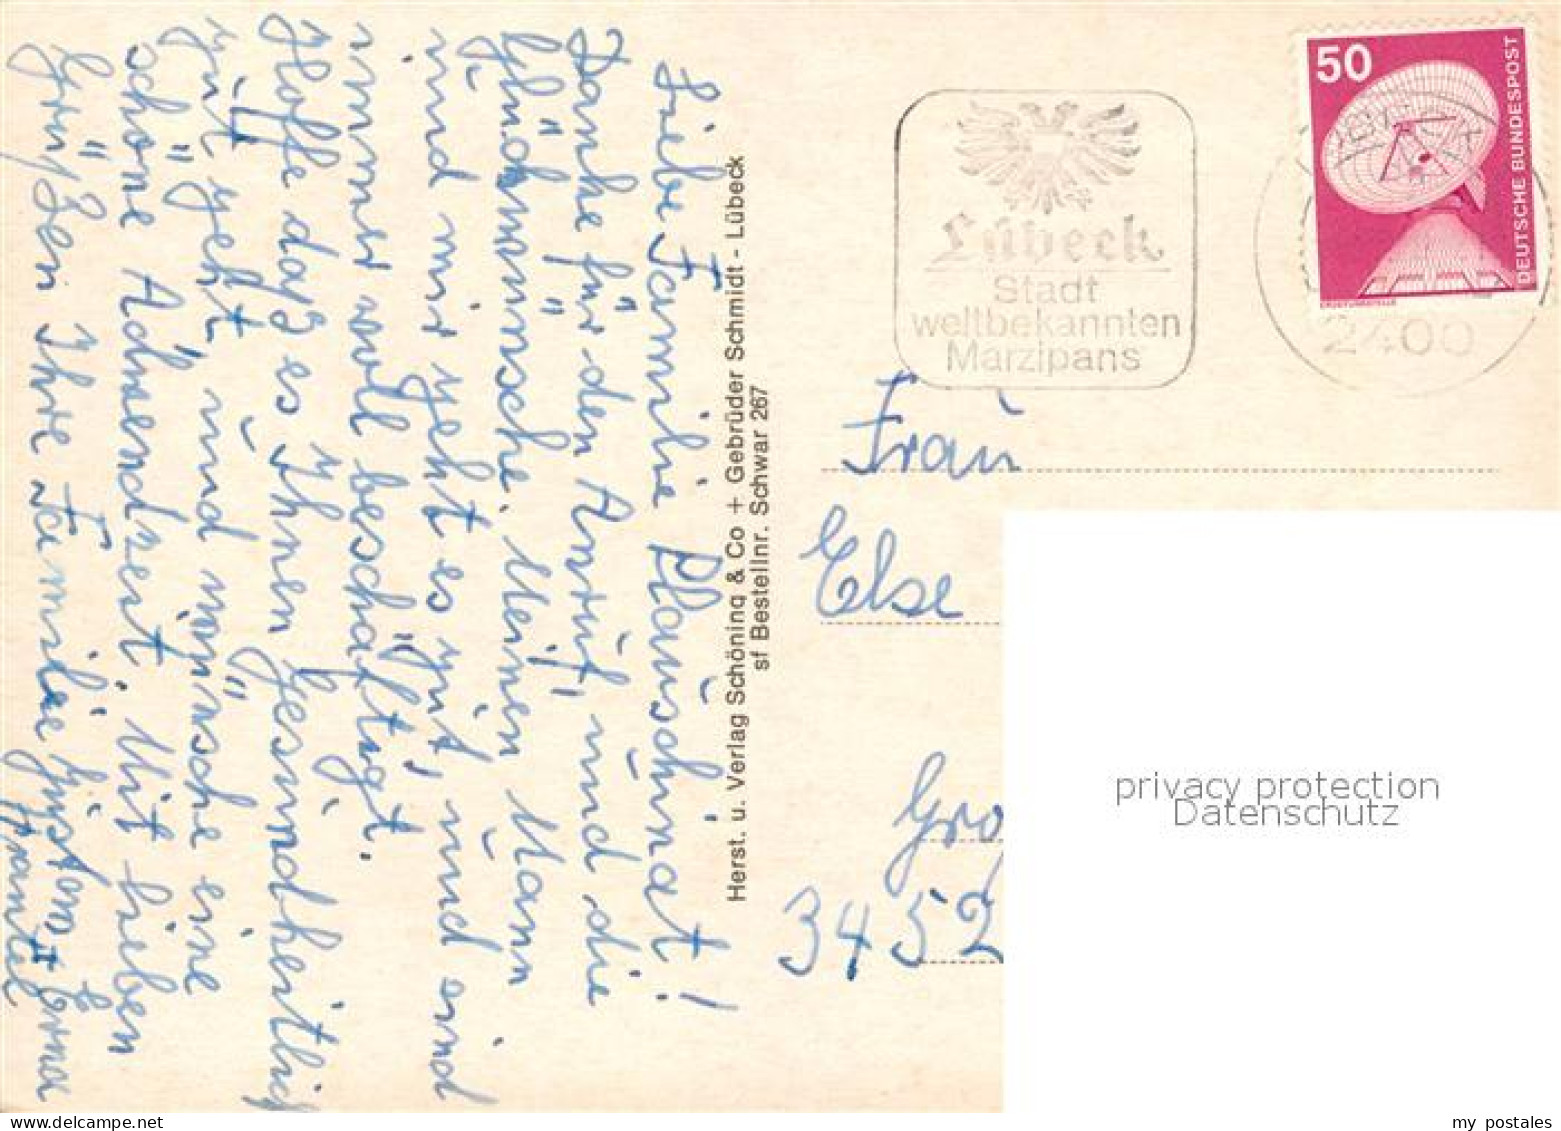 50
DEUTSCHE BUNDESPOST
Lübeck
Stadt
weltbekannten
Marzipans
2400
Frau
Else
Gro
3452
Herst. u. Verlag Schöning & Co + Gebrüder Schmidt - Lübeck
sf Bestellnr. Schwar 267
Liebe Familie Plauschinat!
Danke für den Anruf, und die
Glückwünsche. Meinen Mann
und mir geht es gut, und sind
immer voll beschäftigt.
Hoffe daß es Ihnen gesundheitlich
gut geht, und wünsche eine
schöne Adwendzeit. Mit lieben
Grüßen Ihre Familie Gustav + Erna
privacy protection
Datenschutz
my postales